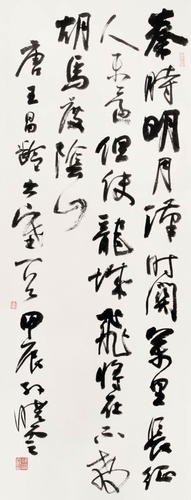 秦時明月漢时関萬里長征
人未還但使龍城飛將在不教
胡馬度陰山
唐王昌齡出塞一首甲辰孙曉云